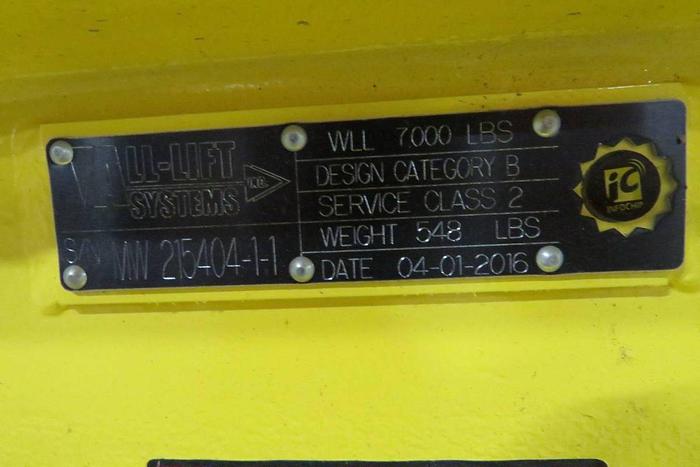 ALL-LIFT
SYSTEMS INC.
S/N MW 215404-1-1
WLL 7000 LBS
DESIGN CATEGORY B
SERVICE CLASS 2
WEIGHT 548 LBS
DATE 04-01-2016
iC
INFOCHIP